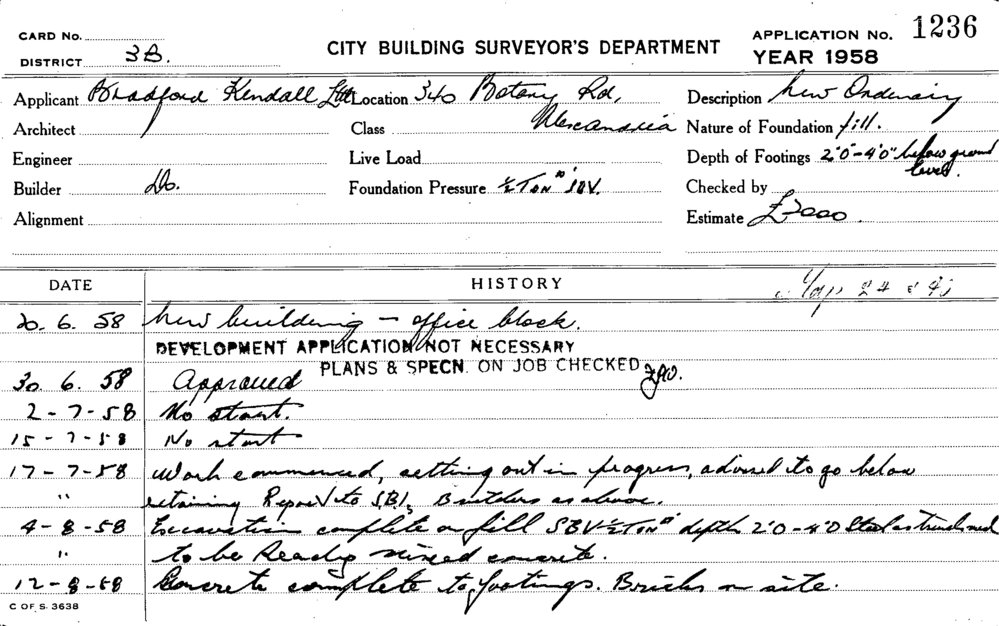 CARD No.
DISTRICT 3B.
CITY BUILDING SURVEYOR'S DEPARTMENT
APPLICATION No. 1236
YEAR 1958
Applicant Bradford Kendall Ltd Location 340 Botany Rd, Description New Ordinary
Architect Class Alexandria Nature of Foundation fill.
Engineer Live Load Depth of Footings 2'0"-4'0" below ground level.
Builder Do. Foundation Pressure ½ Ton □' SBV. Checked by
Alignment Estimate £7000.
DATE HISTORY Map 24
20. 6. 58 New building - office block.
DEVELOPMENT APPLICATION NOT NECESSARY
PLANS & SPECN. ON JOB CHECKED
30. 6. 58 Approved
2-7-58 No start.
15-7-58 No start
17-7-58 Work commenced, setting out in progress, advised to go below
" retaining Report to SBI, Builders as above.
4-8-58 Excavation complete on fill SBV ½ Ton □' depths 2'0-4'0 Steel as
" to be Ready mixed concrete.
12-8-58 Concrete complete to footings. Bricks on site.
C OF S. 3638